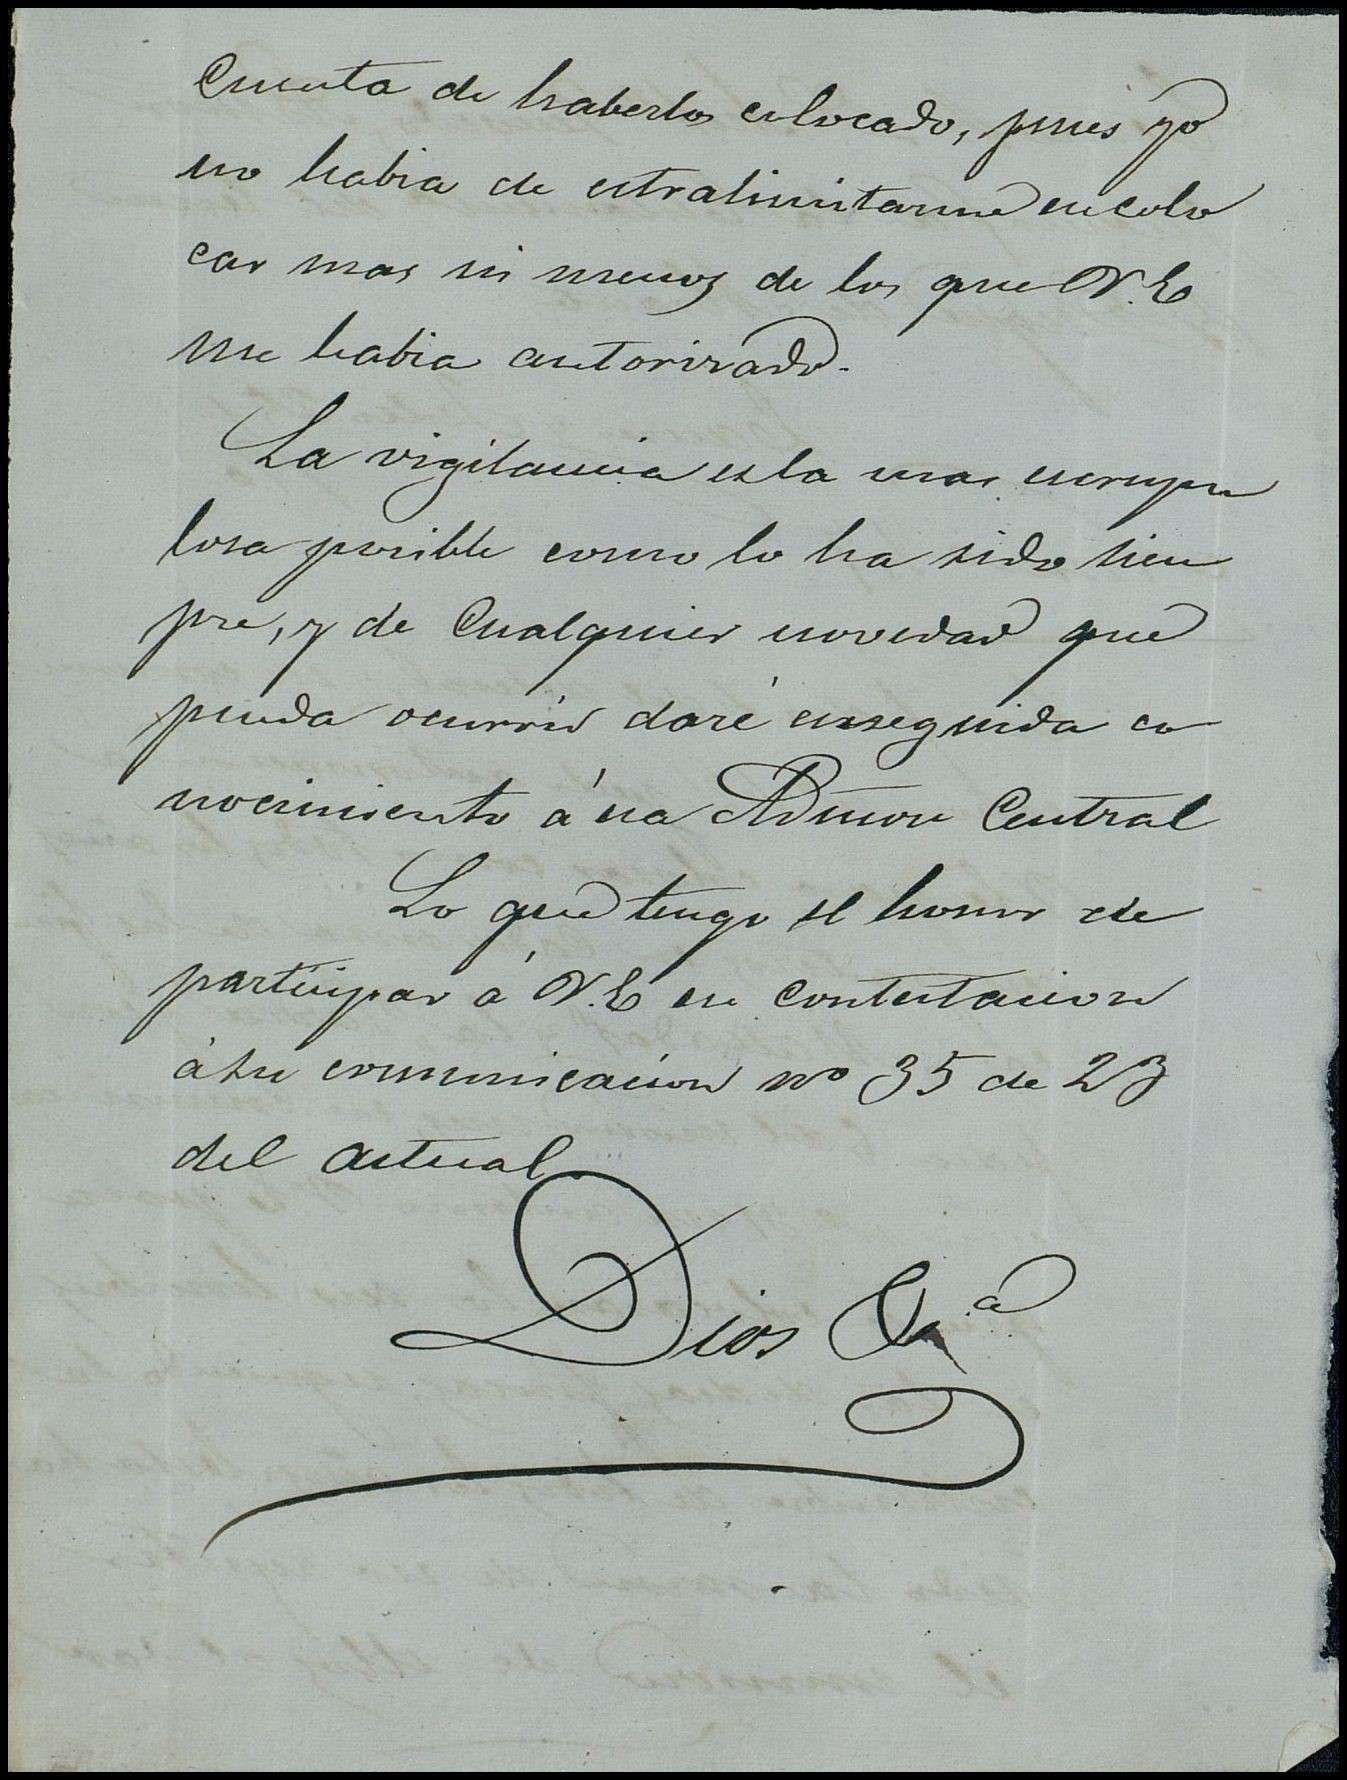 Cuenta de haberlos colocado, pues yo
no habia de estralimitarme en colo
car mas ni menos de los que V.E
me habia autorizado.
La vigilancia es la mas escrupu
losa posible como lo ha sido siem
pre, y de Cualquier novedad que
pueda ocurrir daré enseguida co
nocimiento á esa Admon Central
Lo que tengo el honor de
participar á V.E en contestacion
á su comunicacion nº 35 de 23
del actual
Dios &a